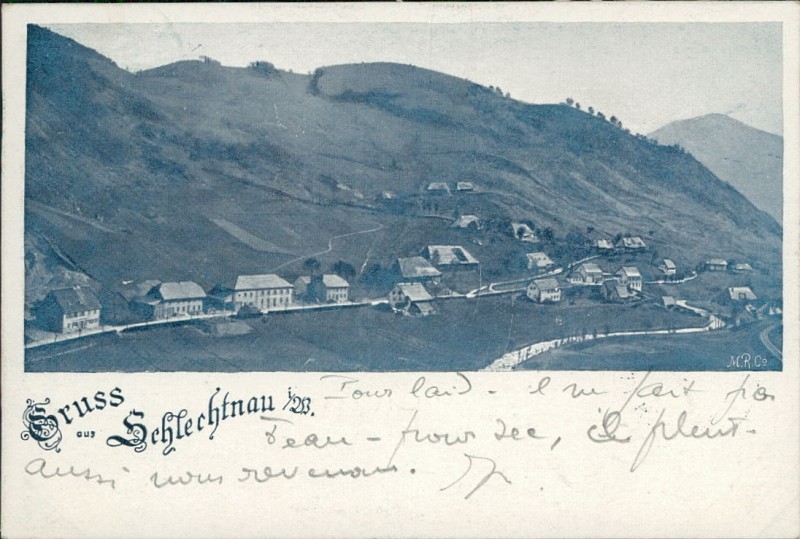 M.R.Co
Gruss aus Schlechtnau i/W.
Tout laid - Il ne fait pas
beau - pour sec, il pleut -
aussi nous revenons.